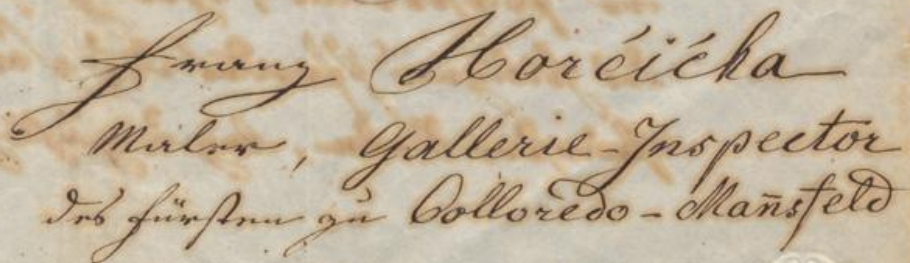 Franz Horčička
Maler, Gallerie-Inspector
des Fürsten zu Colloredo-Mañsfeld